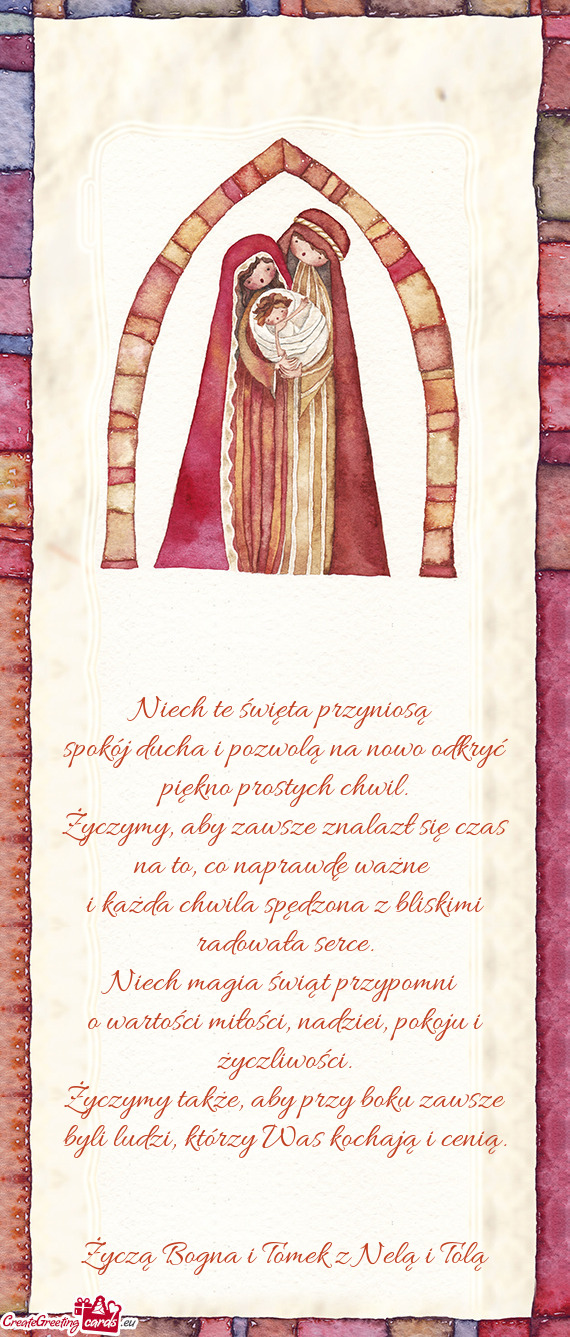 Niech te święta przyniosą
spokój ducha i pozwolą na nowo odkryć
piękno prostych chwil.
Życzymy, aby zawsze znalazł się czas
na to, co naprawdę ważne
i każda chwila spędzona z bliskimi
radowała serce.
Niech magia świąt przypomni
o wartości miłości, nadziei, pokoju i
życzliwości.
Życzymy także, aby przy boku zawsze
byli ludzi, którzy Was kochają i cenią.
Życzą Bogna i Tomek z Nelą i Tolą
CreateGreeting cards .eu